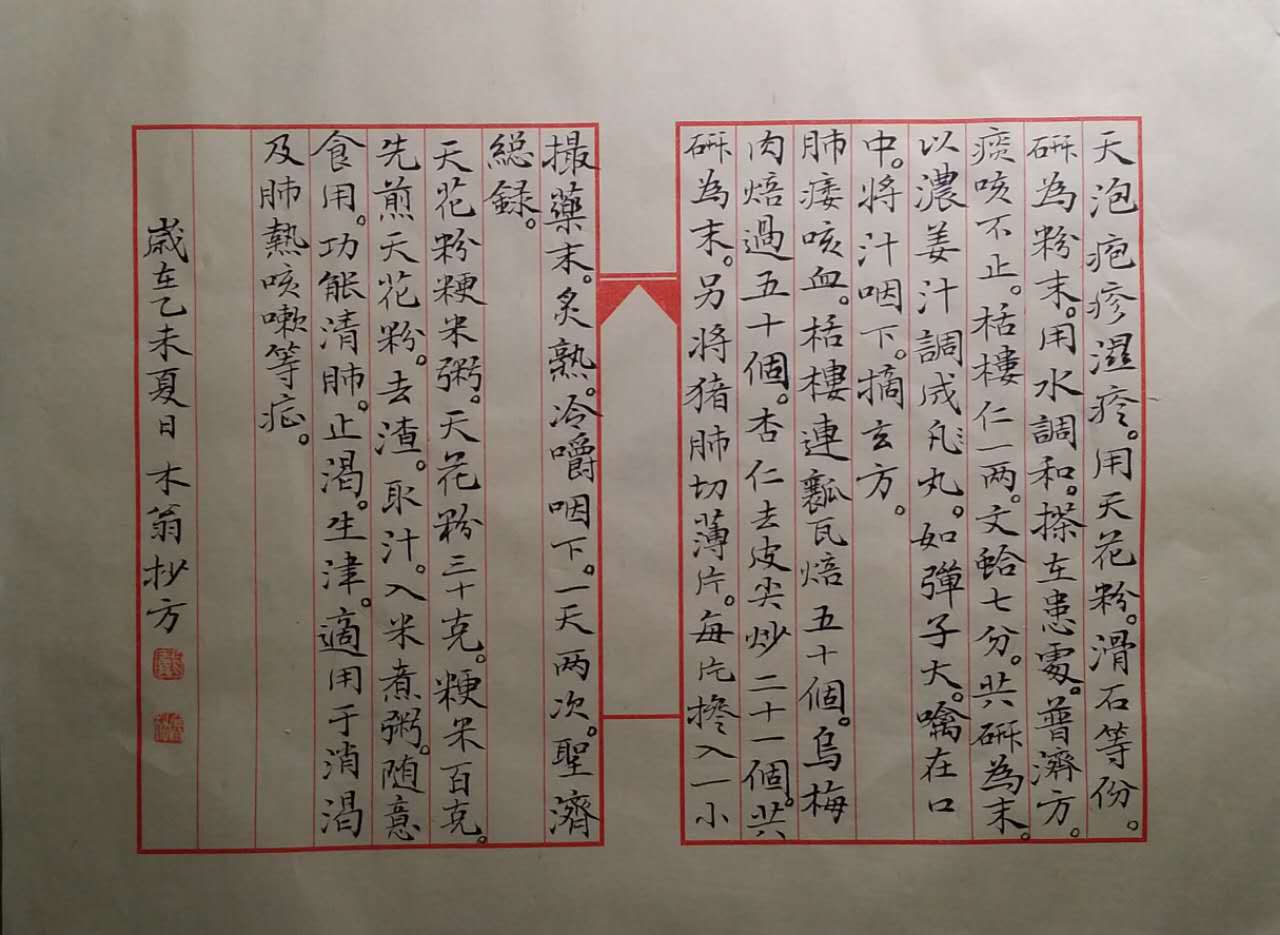 天泡疱疹濕疹。用天花粉。滑石等份。
研為粉末。用水調和。搽在患處。普濟方。
痰咳不止。栝樓仁一两。文蛤七分。共研為末。
以濃姜汁調成丸。如彈子大。噙在口
中。將汁咽下。摘玄方。
肺痿咳血。栝樓連瓤瓦焙五十個。烏梅
肉焙過五十個。杏仁去皮尖炒二十一個。共
研為末。另将猪肺切薄片。每片摻入一小
撮藥末。炙熟。冷嚼咽下。一天两次。聖濟
総録。
天花粉粳米粥。天花粉三十克。粳米百克。
先煎天花粉。去渣。取汁。入米煮粥。随意
食用。功能清肺。止渴。生津。適用于消渴
及肺熱咳嗽等症。
歲在乙未夏日 木翁抄方